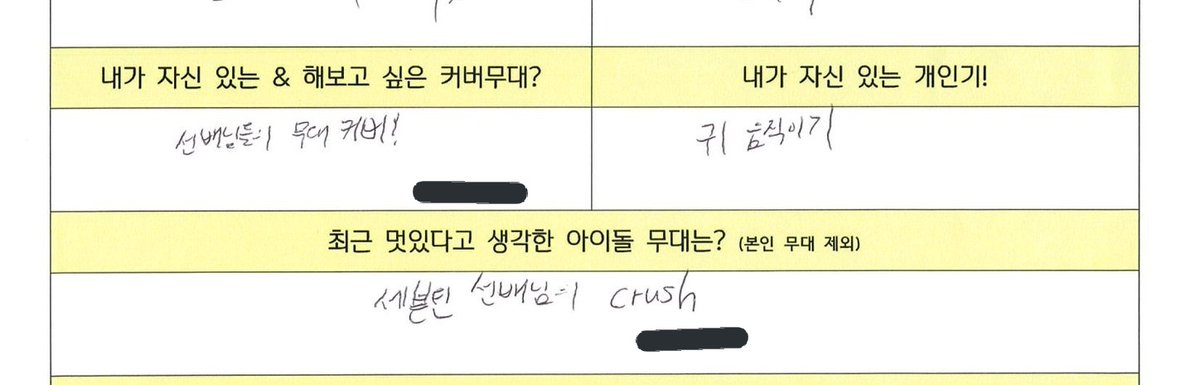 내가 자신 있는 & 해보고 싶은 커버무대?
내가 자신 있는 개인기!
선배님들의 무대 커버!
귀 움직이기
최근 멋있다고 생각한 아이돌 무대는? (본인 무대 제외)
세븐틴 선배님의 crush